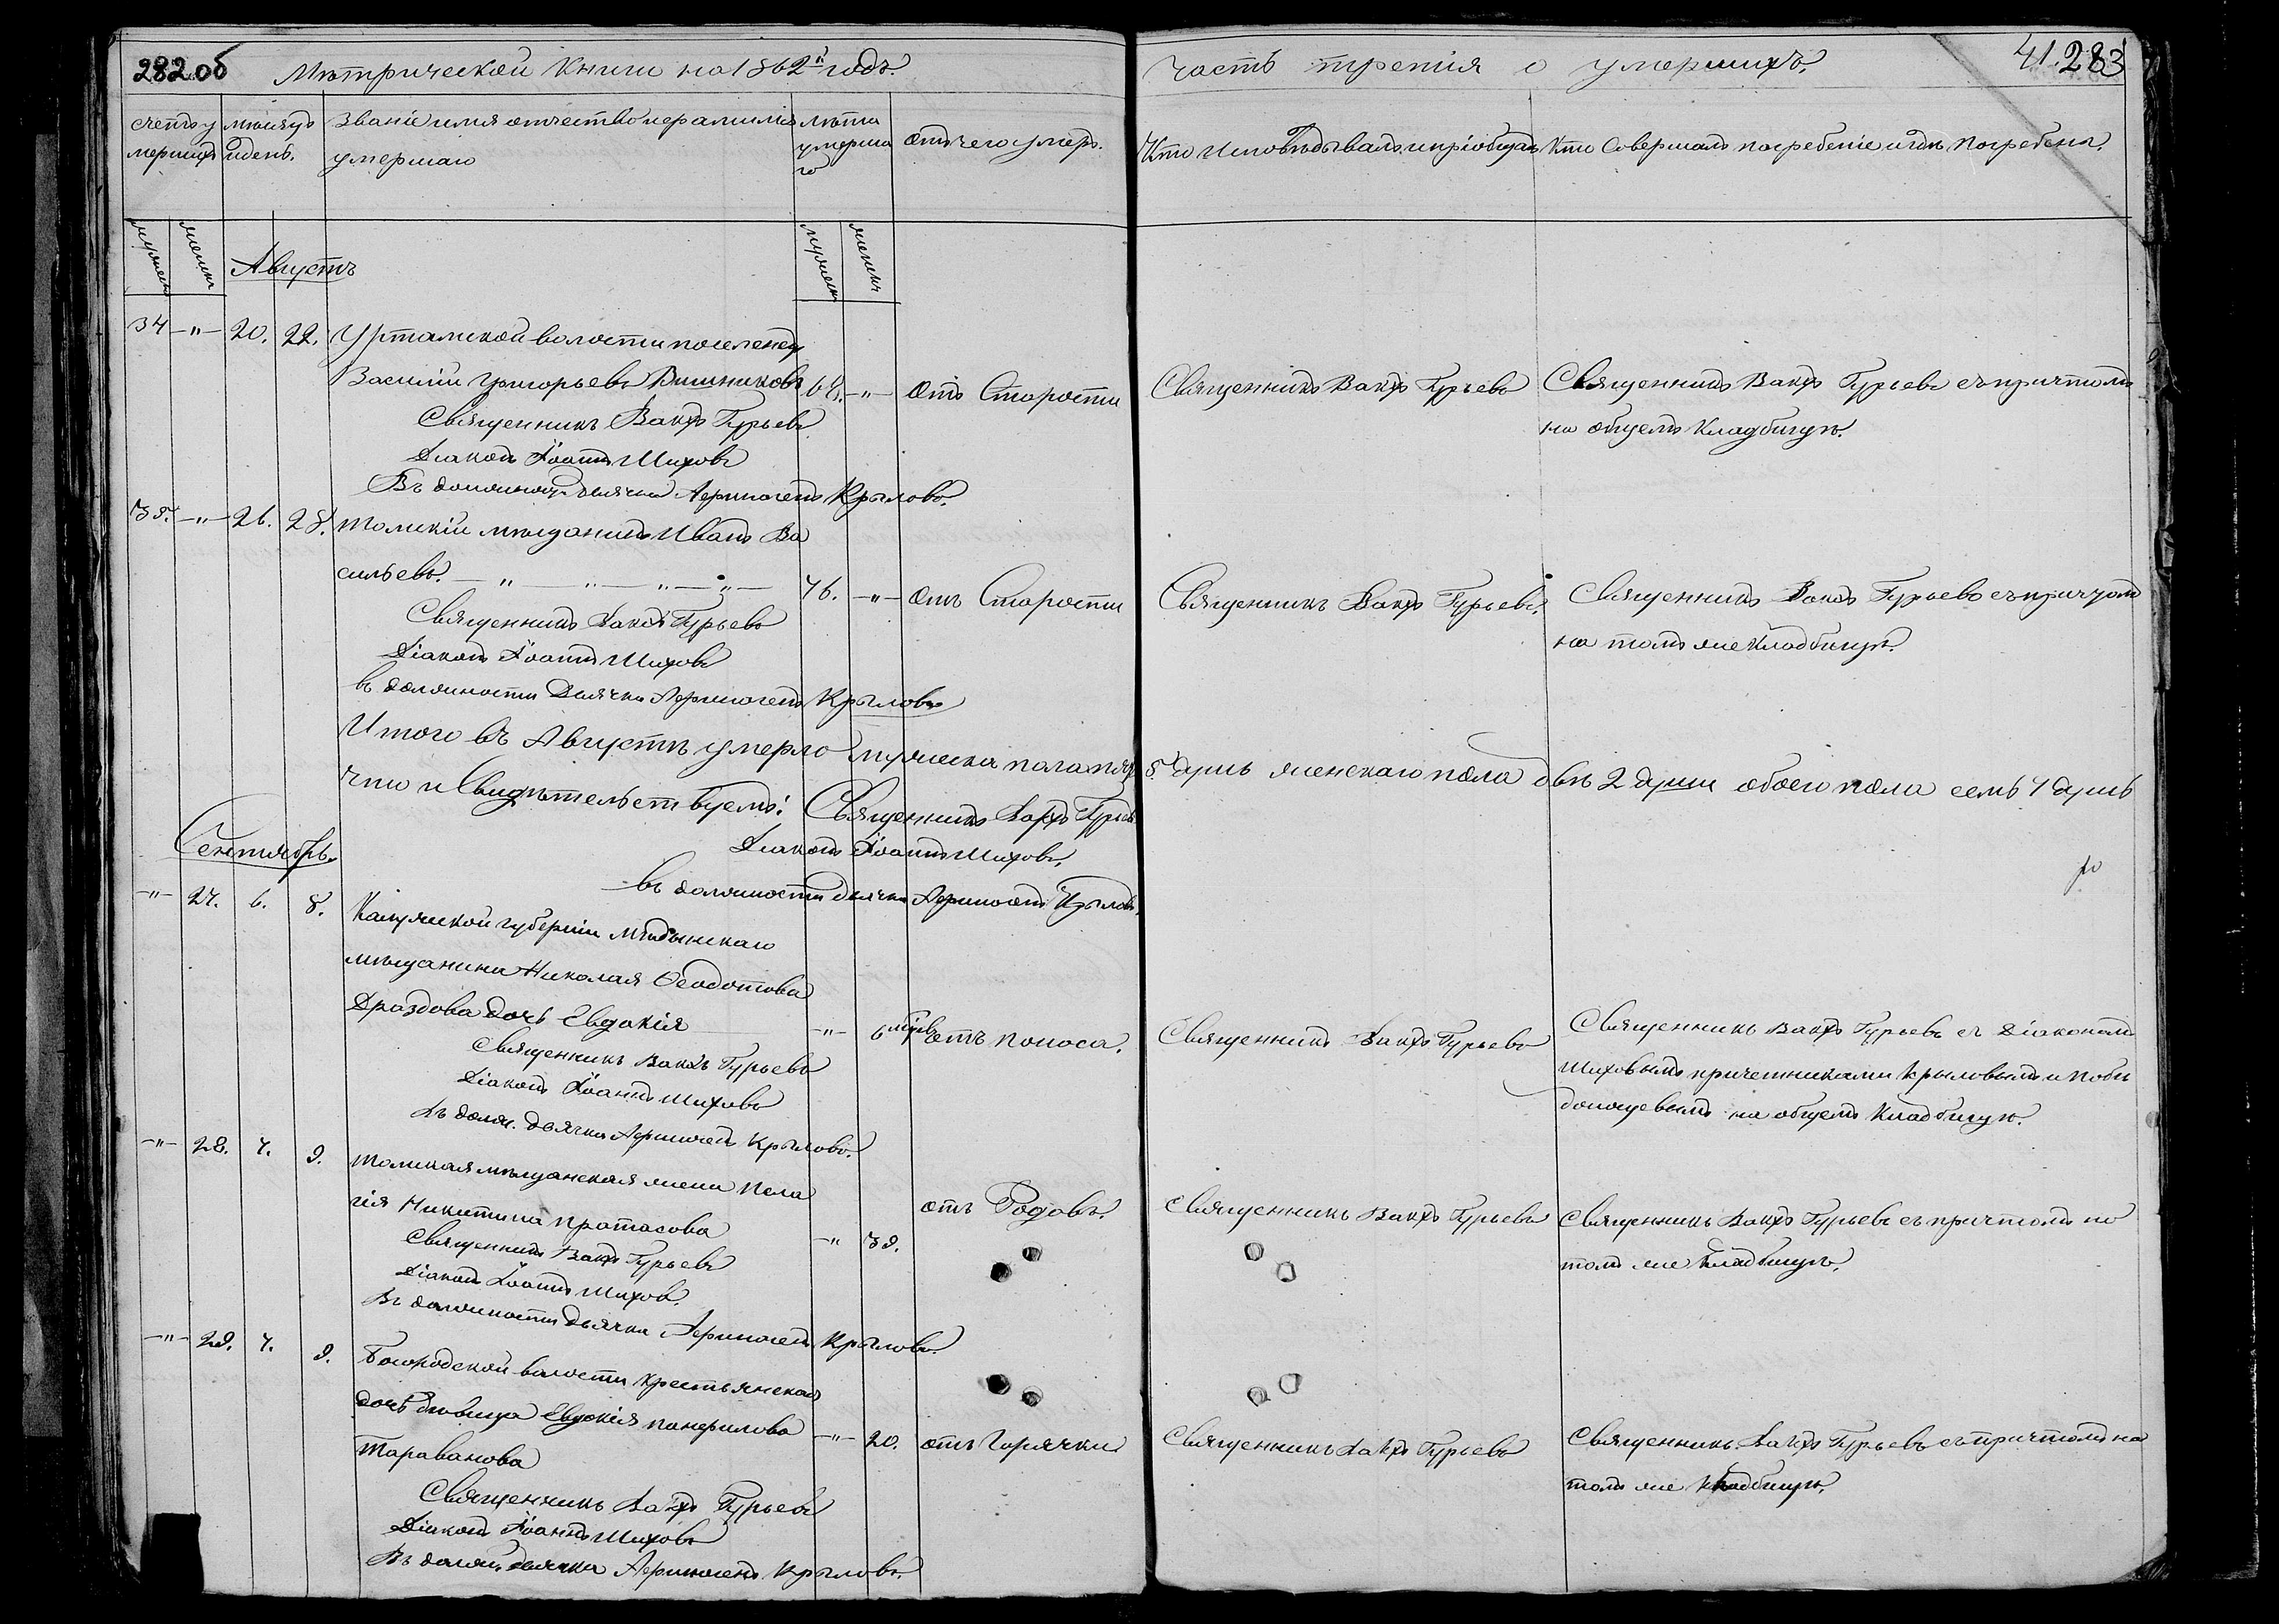 282 об
Метрической книги на 1862й годъ.
Часть третія о умершихъ.
41. 283
счетъ у
мершихъ
мѣсяцъ
и день.
Званіе имя отчество и фамилія
умершаго
лѣта
умерша
го
отъ чего умеръ.
Кто исповѣдывалъ и пріобщалъ
Кто совершалъ погребеніе и гдѣ погребены.
мужеска
женска
мужеска
женска
Августъ
34 —"— 20. 22. Уртамской волости поселенецъ
Василій Григорьевъ Вишняковъ —"— отъ Старости
Священникъ Вакхъ Гурьевъ
Священникъ Вакхъ Гурьевъ съ причтомъ
на общемъ кладбищѣ.
Священникъ Вакхъ Гурьевъ
Діаконъ Іоаннъ Шиховъ
Въ должност. дьячка Аѳиногенъ Крыловъ.
35. —"— 26. 28. Томскій мѣщанинъ Иванъ Ва
сильевъ. —"—"—"—"— 76. —"— отъ Старости
Священникъ Вакхъ Гурьевъ.
Священникъ Вакхъ Гурьевъ съ причтомъ
на томъ же кладбищѣ.
Священникъ Вакхъ Гурьевъ
Діаконъ Іоаннъ Шиховъ
въ должности дьячка Аѳиногенъ Крыловъ
Итого въ Августѣ умерло мужеска пола пять 5. душъ женскаго пола двѣ 2 души обоего пола семь 7 душъ
что и Свидѣтельствуемъ: Священникъ Вакхъ Гурьевъ
Діаконъ Іоаннъ Шиховъ.
въ должности дьячка Аѳиногенъ Крыловъ.
Сентябрь.
—"— 27. 6. 8. Калужской губерніи Мѣдынскаго
мѣщанина Николая Ѳеодотова
Драздова дочь Евдокія —"— 6 мѣсяц. отъ поноса.
Священникъ Вакхъ Гурьевъ
Священникъ Вакхъ Гурьевъ съ Діакономъ
Шиховымъ причетниками Крыловымъ и Побѣ
доносцевымъ на общемъ кладбищѣ.
Священникъ Вакхъ Гурьевъ
Діаконъ Іоаннъ Шиховъ
въ долж. дьячка Аѳиногенъ Крыловъ.
—"— 28. 7. 9. Томская мѣщанская жена Пела
гія Никитина Протасова —"— 39. отъ Родовъ.
Священникъ Вакхъ Гурьевъ
Священникъ Вакхъ Гурьевъ съ причтомъ на
томъ же кладбищѣ.
Священникъ Вакхъ Гурьевъ
Діаконъ Іоаннъ Шиховъ.
Въ должности дьячка Аѳиногенъ Крыловъ.
—"— 29. 7. 9. Богородской волости крестьянская
дочь дѣвица Евдокія Панфилова —"— 20. отъ горячки
Тараванова
Священникъ Вакхъ Гурьевъ
Священникъ Вакхъ Гурьевъ съ причтомъ на
томъ же кладбищѣ.
Священникъ Вакхъ Гурьевъ
Діаконъ Іоаннъ Шиховъ
Въ должн. дьячка Аѳиногенъ Крыловъ.